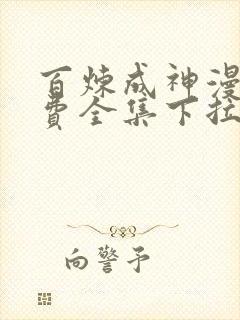 百炼成神漫
费全集下拉
向警予